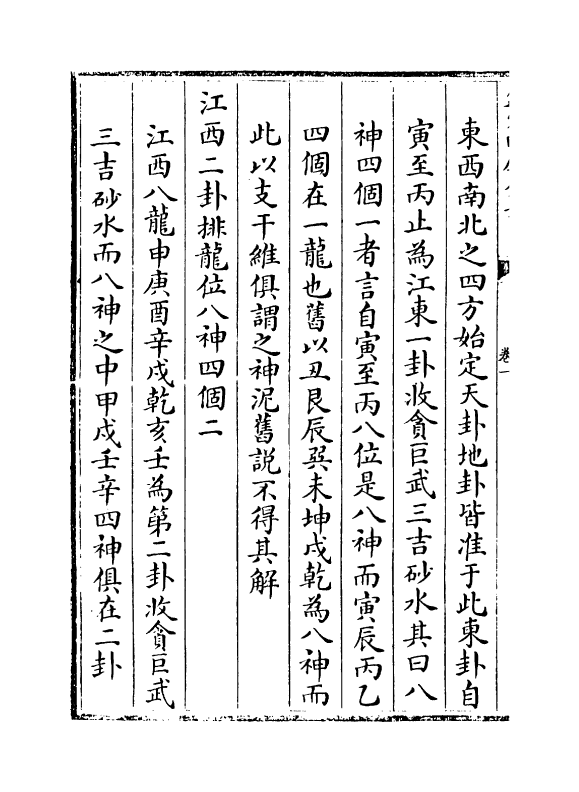 東西南北之四方始定天卦地卦皆准于此東卦自
寅至丙止為江東一卦收貪巨武三吉砂水其曰八
神四個一者言自寅至丙八位是八神而寅辰丙乙
四個在一龍也舊以丑艮辰巽未坤戌乾為八神而
此以支干維俱謂之神泥舊説不得其解
江西二卦排龍位八神四個二
江西八龍申庚酉辛戌乾亥壬為第二卦收貪巨武
三吉砂水而八神之中甲戌壬辛四神俱在二卦
卷一